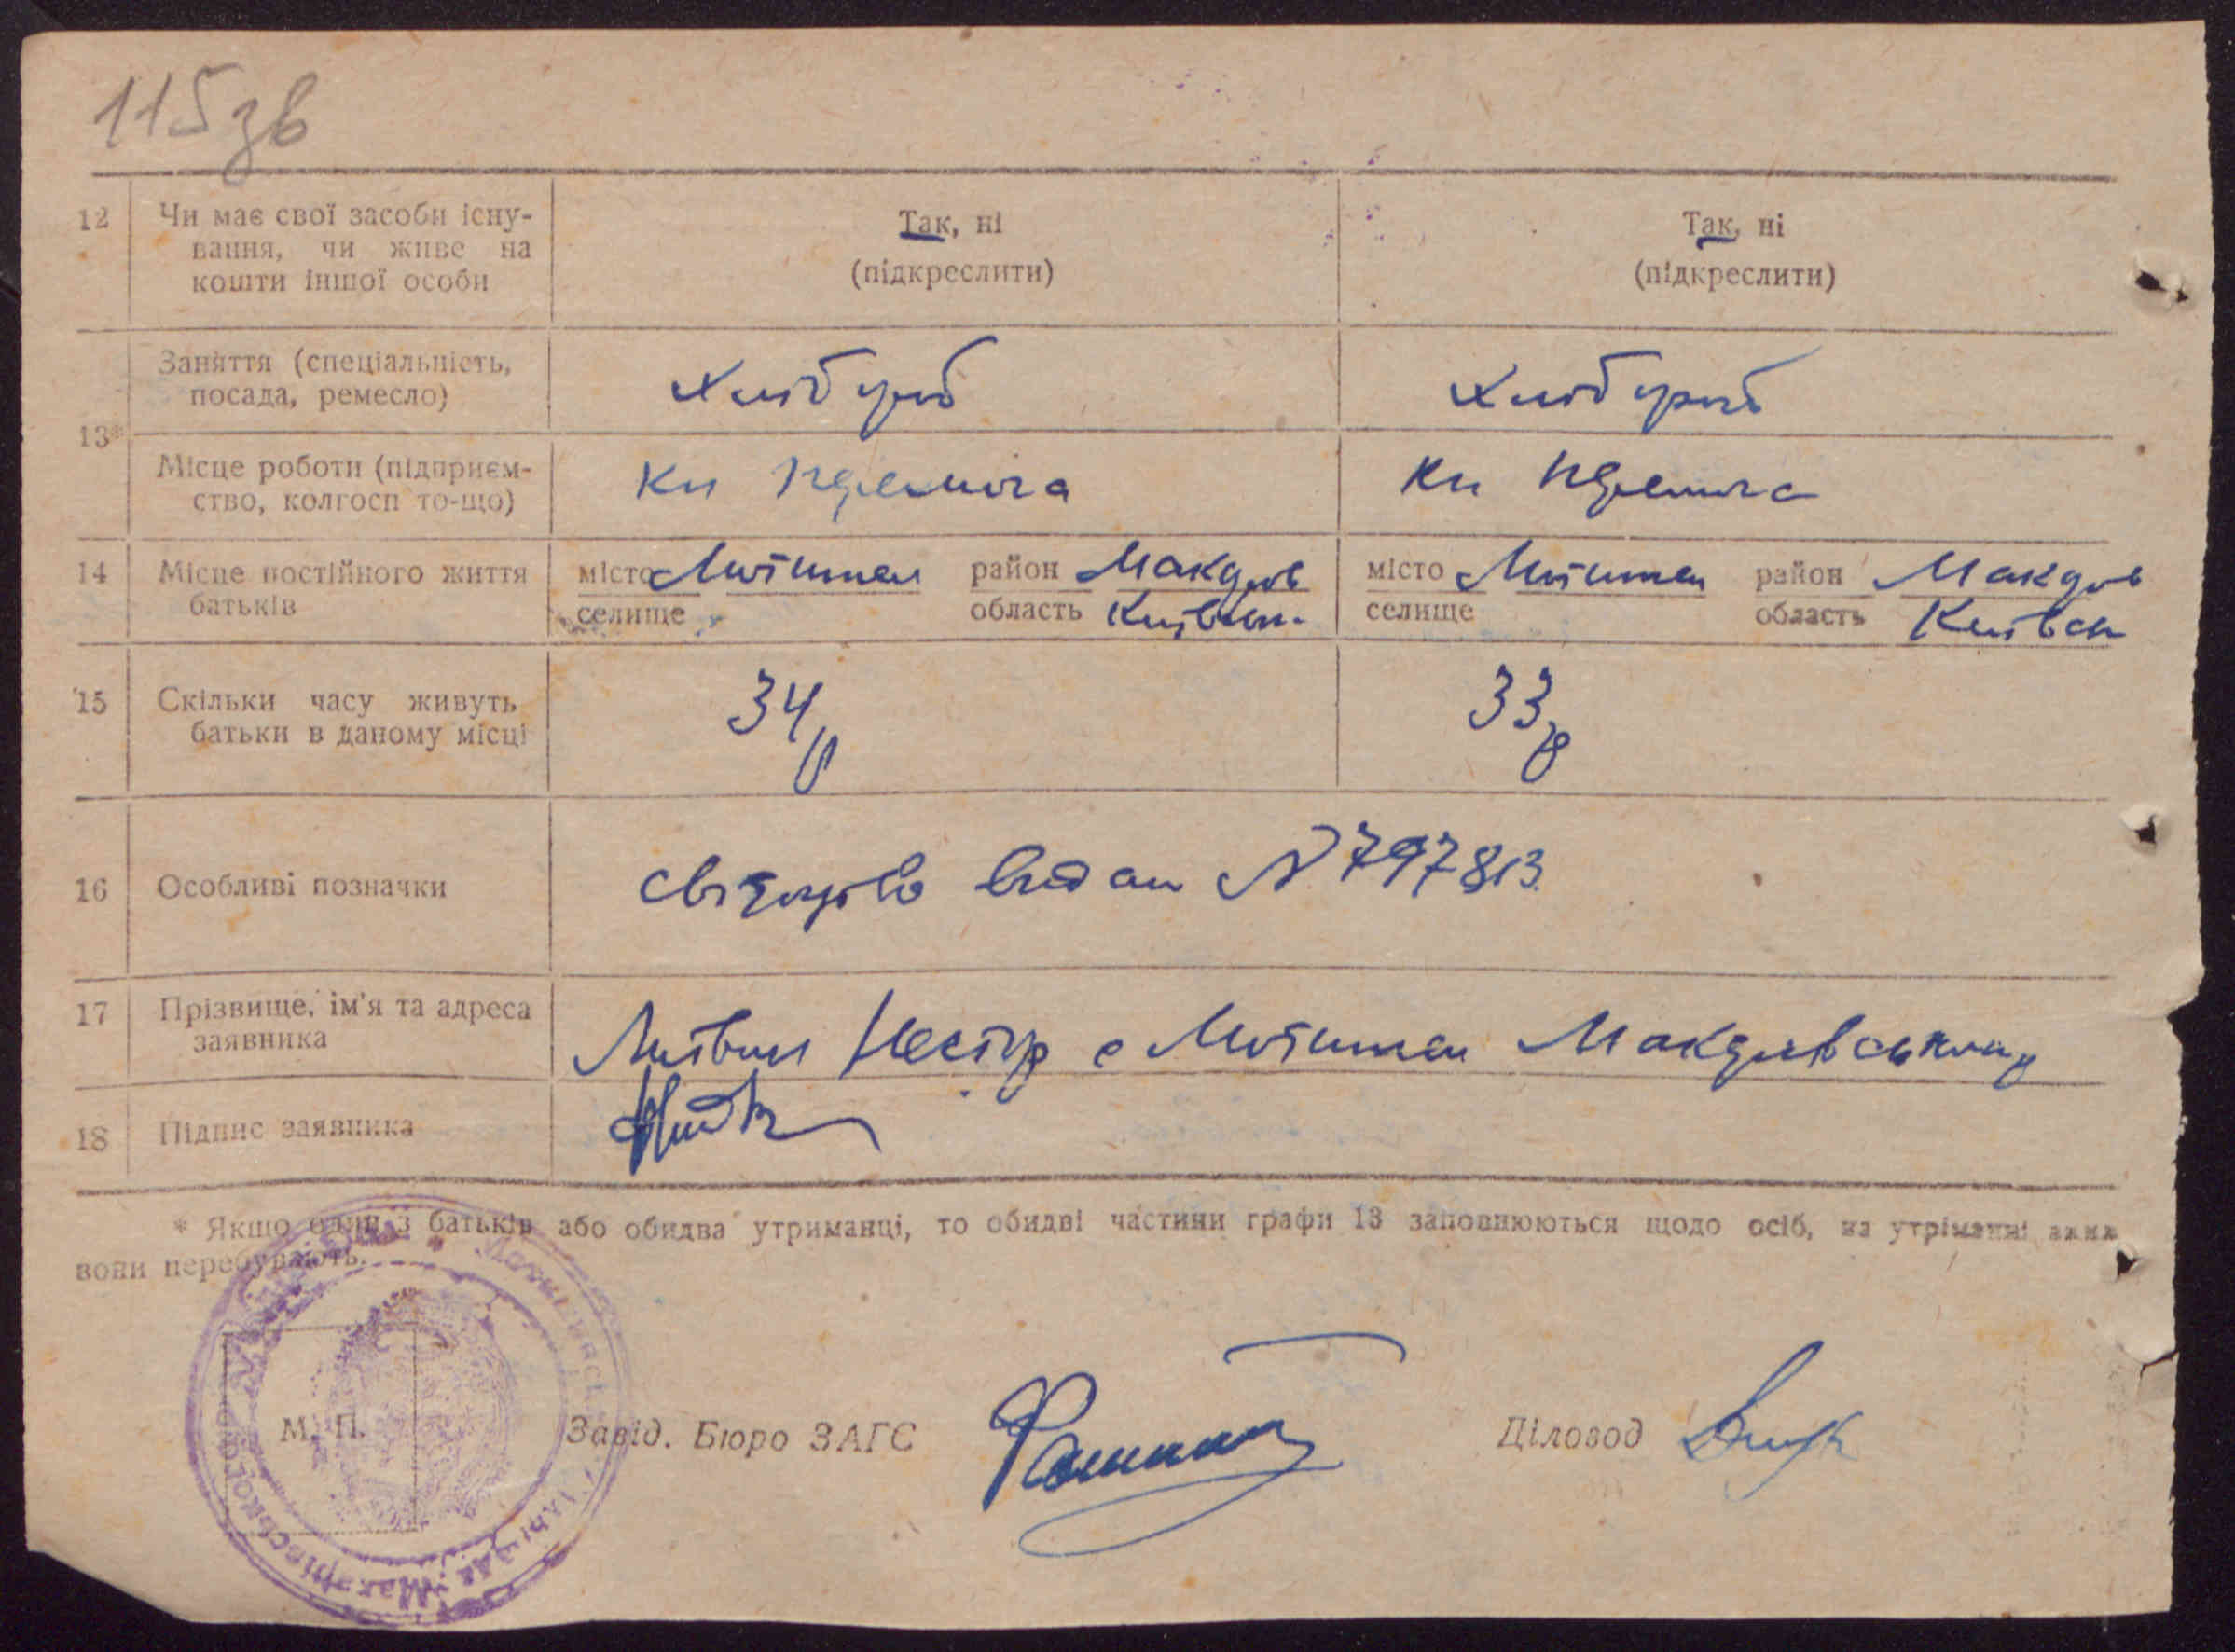 115зв
12 Чи має свої засоби існу- Так, ні Так, ні
вання, чи живе на (підкреслити) (підкреслити)
кошти іншої особи
Заняття (спеціальність, Хлібороб Хлібороб
посада, ремесло)
13*
Місце роботи (підприєм- Кп Перемога Кп Перемога
ство, колгосп то-що)
14 Місце постійного життя місто Мотижин район Макарів місто Мотижин район Макарів
батьків селище область Київськ. селище область Київськ
15 Скільки часу живуть 34 р 33 р
батьки в даному місці
16 Особливі позначки свідоцтво видан № 797813.
17 Прізвище, ім'я та адреса Литвин Нестір с Мотижин Макарівського р
заявника
18 Підпис заявника
* Якщо один з батьків або обидва утриманці, то обидві частини графи 13 заповнюються щодо осіб, на утріманні яких
вони перебувають.
М. П. Завід. Бюро ЗАГС Діловод